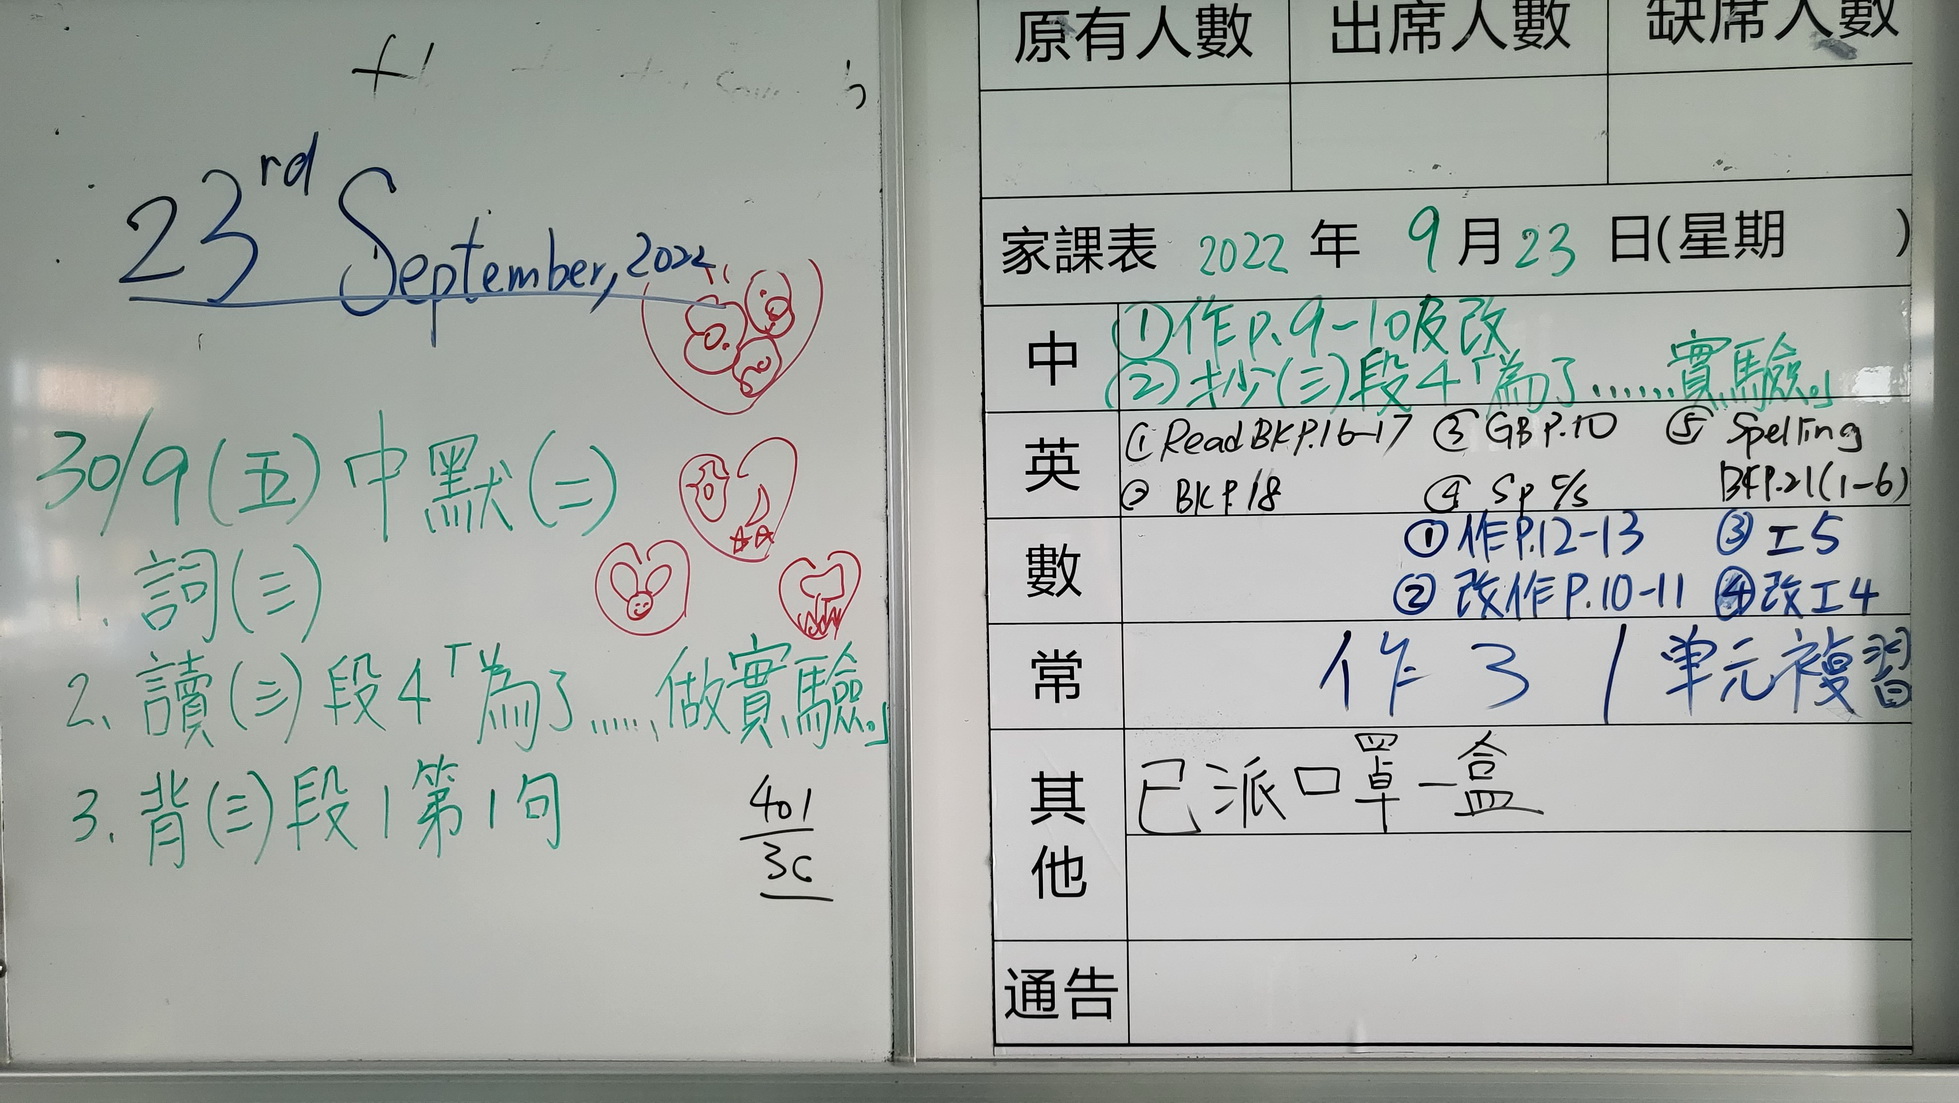 23rd September, 2022
30/9(五)中默(二)
1. 詞(三)
2. 讀(三)段4「為了......做實驗。」
3. 背(三)段1第1句
401
3C
原有人數 出席人數 缺席人數
家課表 2022 年 9 月 23 日(星期 )
中 ①作P.9-10及改
②抄(三)段4「為了......實驗。」
英 ①Read BK P.16-17 ③ GB P.10 ⑤ Spelling
② BK P.18 ④ Sp c/s BK P.21(1-6)
數 ①作P.12-13 ③工5
②改作P.10-11 ④改工4
常 作 3 / 單元複習
其他 已派口罩一盒
通告